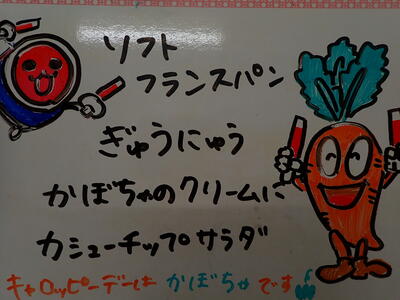 ソフト
フランスパン
ぎゅうにゅう
かぼちゃのクリームに
カシューチップサラダ
キャロッピーデーは かぼちゃ です